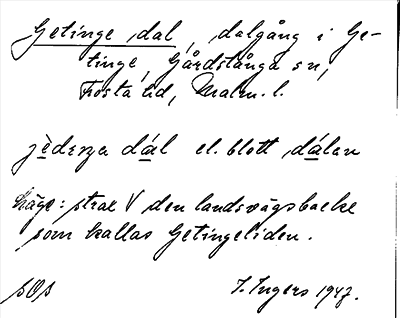 Getinge dal, dalgång i Ge-
tinge, Gårdstånga sn,
Frosta hd, Malm. l.
jèdenga dál el. blott dálan
Läge: strax V den landsvägsbacke
som kallas Getingeliden.
I. Ingers 1947.